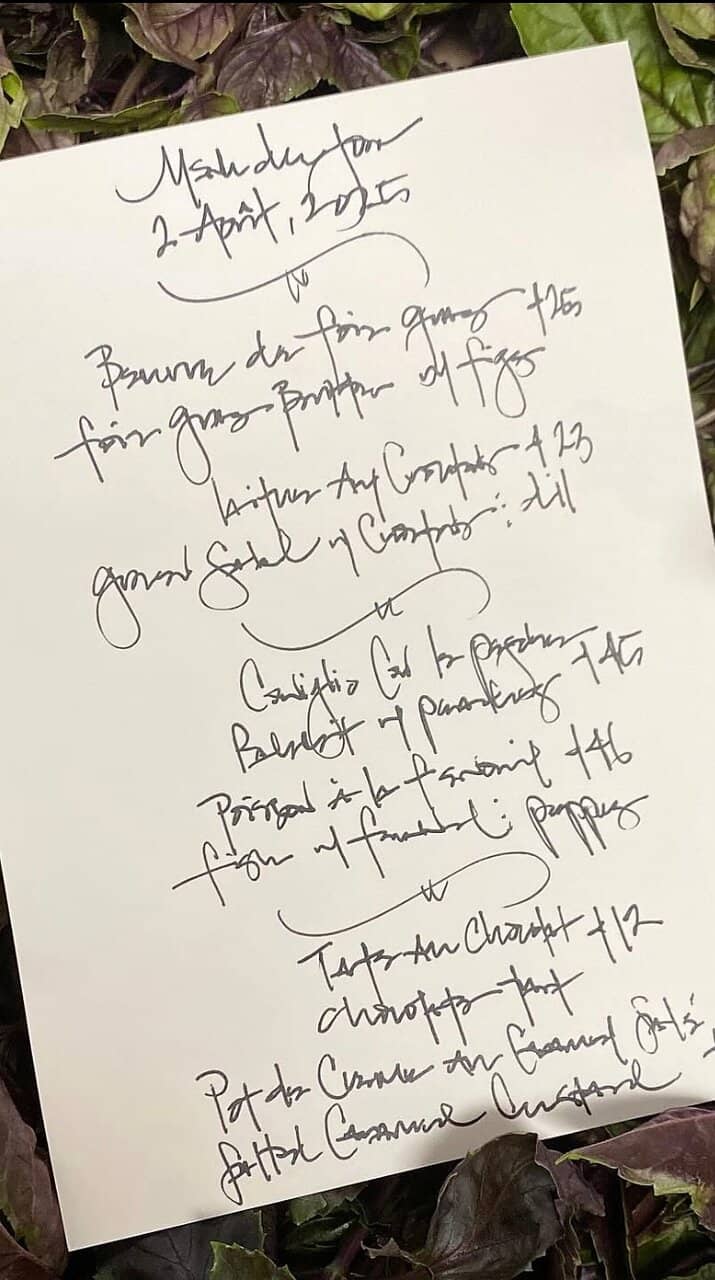 Menu du jour
2 Août, 2025
Beurre de foie gras +25
foie gras Butter w/ figs
Laitues Aux Croutons +23
green Salad w/ Croutons: dill
Coniglio Con la
Rabbit w/ +45
Poisson à la fenouil +46
fish w/ fennel: peppers
Tarte Au Chocolat +12
chocolate tart
Pot de Creme au Caramel Salé
Salted Caramel Custard